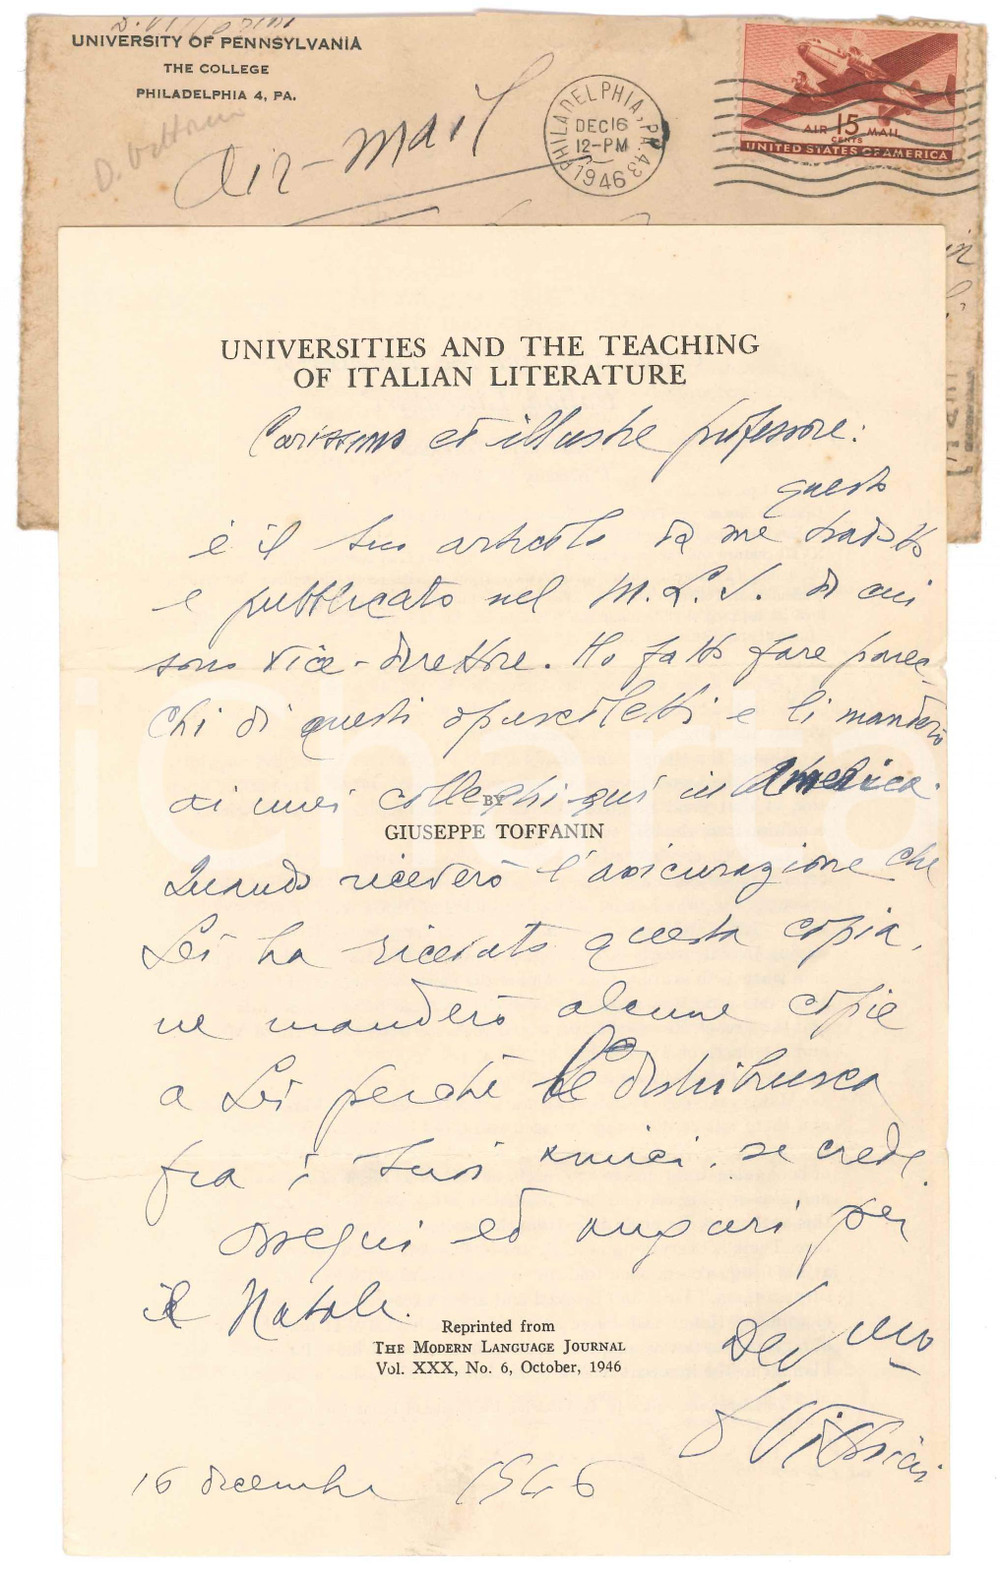 D. Vittorini
UNIVERSITY OF PENNSYLVANIA
THE COLLEGE
PHILADELPHIA 4, PA.
D. Vittorini
Air-mail
PHILADELPHIA, PA. 43
DEC 16
12-PM
1946
AIR 15 MAIL
CENTS
UNITED STATES OF AMERICA
UNIVERSITIES AND THE TEACHING
OF ITALIAN LITERATURE
Carissimo ed illustre professore:
questo
è il suo articolo da me tradotto
e pubblicato nel M.L.J. di cui
sono vice-direttore. Ho fatto fare parec-
chi di questi opuscoletti e li manderò
ai miei colleghi qui in America.
BY
GIUSEPPE TOFFANIN
Quando riceverò l'assicurazione che
Lei ha ricevuto questa copia,
ne manderò alcune copie
a Lei perchè le distribuisca
fra i suoi amici, se crede.
Ossequi ed auguri per
il Natale.
Reprinted from
THE MODERN LANGUAGE JOURNAL
Vol. XXX, No. 6, October, 1946
Dev mo
D Vittorini
16 dicembre 1946
icharta